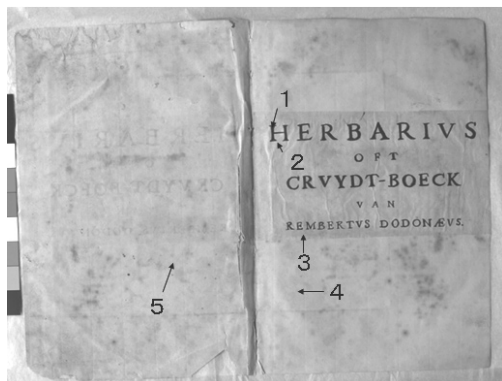 1
HERBARIVS
2
OFT
CRVYDT-BOECK
VAN
REMBERTVS DODONÆVS.
3
4
5